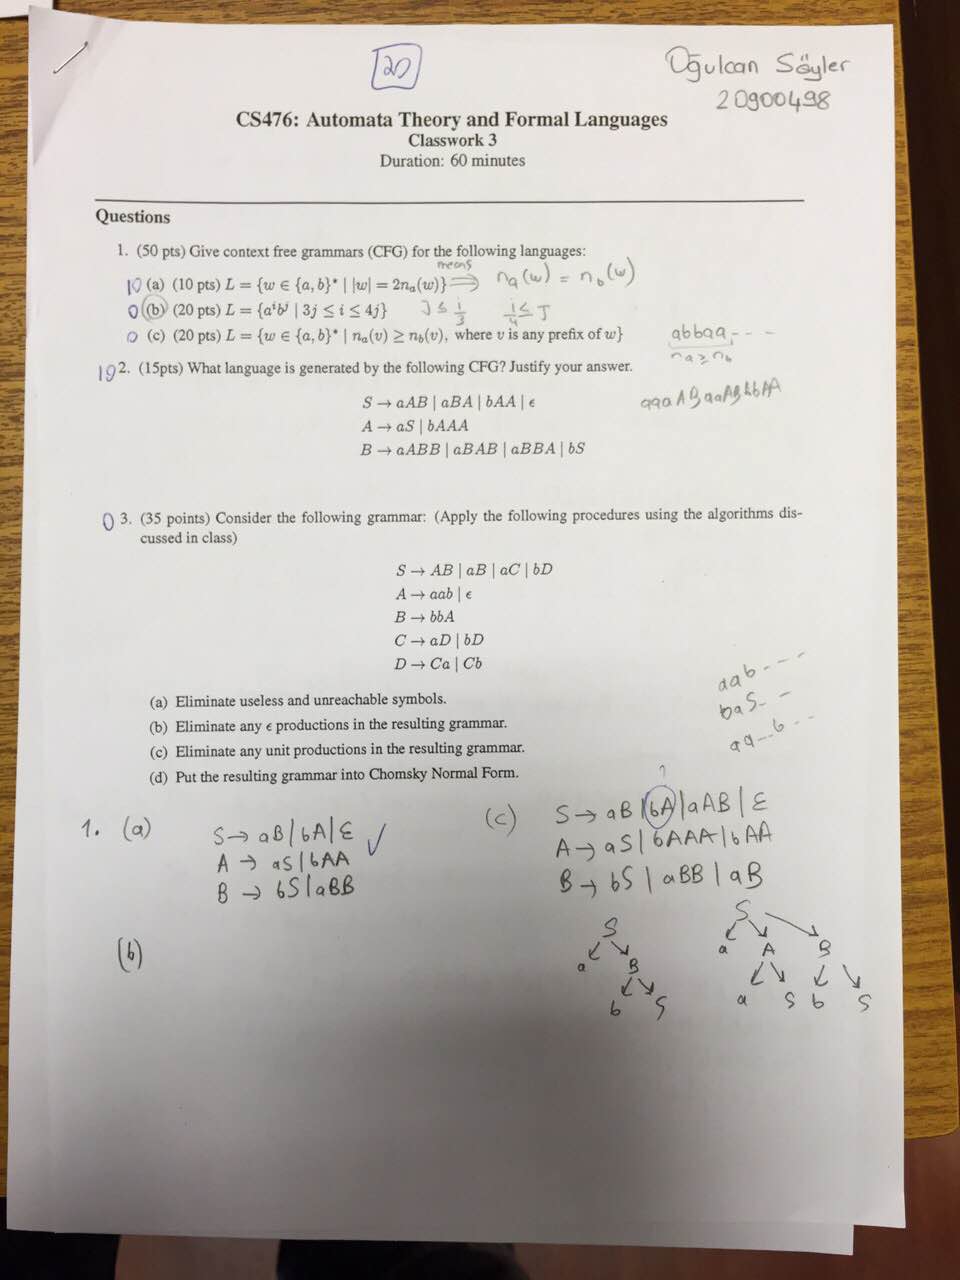 20
Oğulcan Söyler
20900498
CS476: Automata Theory and Formal Languages
Classwork 3
Duration: 60 minutes
Questions
1. (50 pts) Give context free grammars (CFG) for the following languages:
10 (a) (10 pts) L = {w ∈ {a, b}* | |w| = 2nₐ(w)} means ⟹ nₐ(w) = n_b(w)
0 (b) (20 pts) L = {aⁱbʲ | 3j ≤ i ≤ 4j} J ≤ i/3 i/4 ≤ J
0 (c) (20 pts) L = {w ∈ {a, b}* | nₐ(v) ≥ n_b(v), where v is any prefix of w} abbaa, - - -
nₐ ≥ n_b
2. (15pts) What language is generated by the following CFG? Justify your answer.
S → aAB | aBA | bAA | ϵ
A → aS | bAAA
B → aABB | aBAB | aBBA | bS
0 3. (35 points) Consider the following grammar: (Apply the following procedures using the algorithms dis-
cussed in class)
S → AB | aB | aC | bD
A → aab | ϵ
B → bbA
C → aD | bD
D → Ca | Cb
aab - - -
baS - -
aa - - b - - -
(a) Eliminate useless and unreachable symbols.
(b) Eliminate any ϵ productions in the resulting grammar.
(c) Eliminate any unit productions in the resulting grammar.
(d) Put the resulting grammar into Chomsky Normal Form.
1. (a)
S → aB | bA | ε ✓
A → aS | bAA
B → bS | aBB
(b)
(c)
?
S → aB | bA | aAB | ε
A → aS | bAAA | bAA
B → bS | aBB | aB
S
a B
b S
S
a A B
a S b S